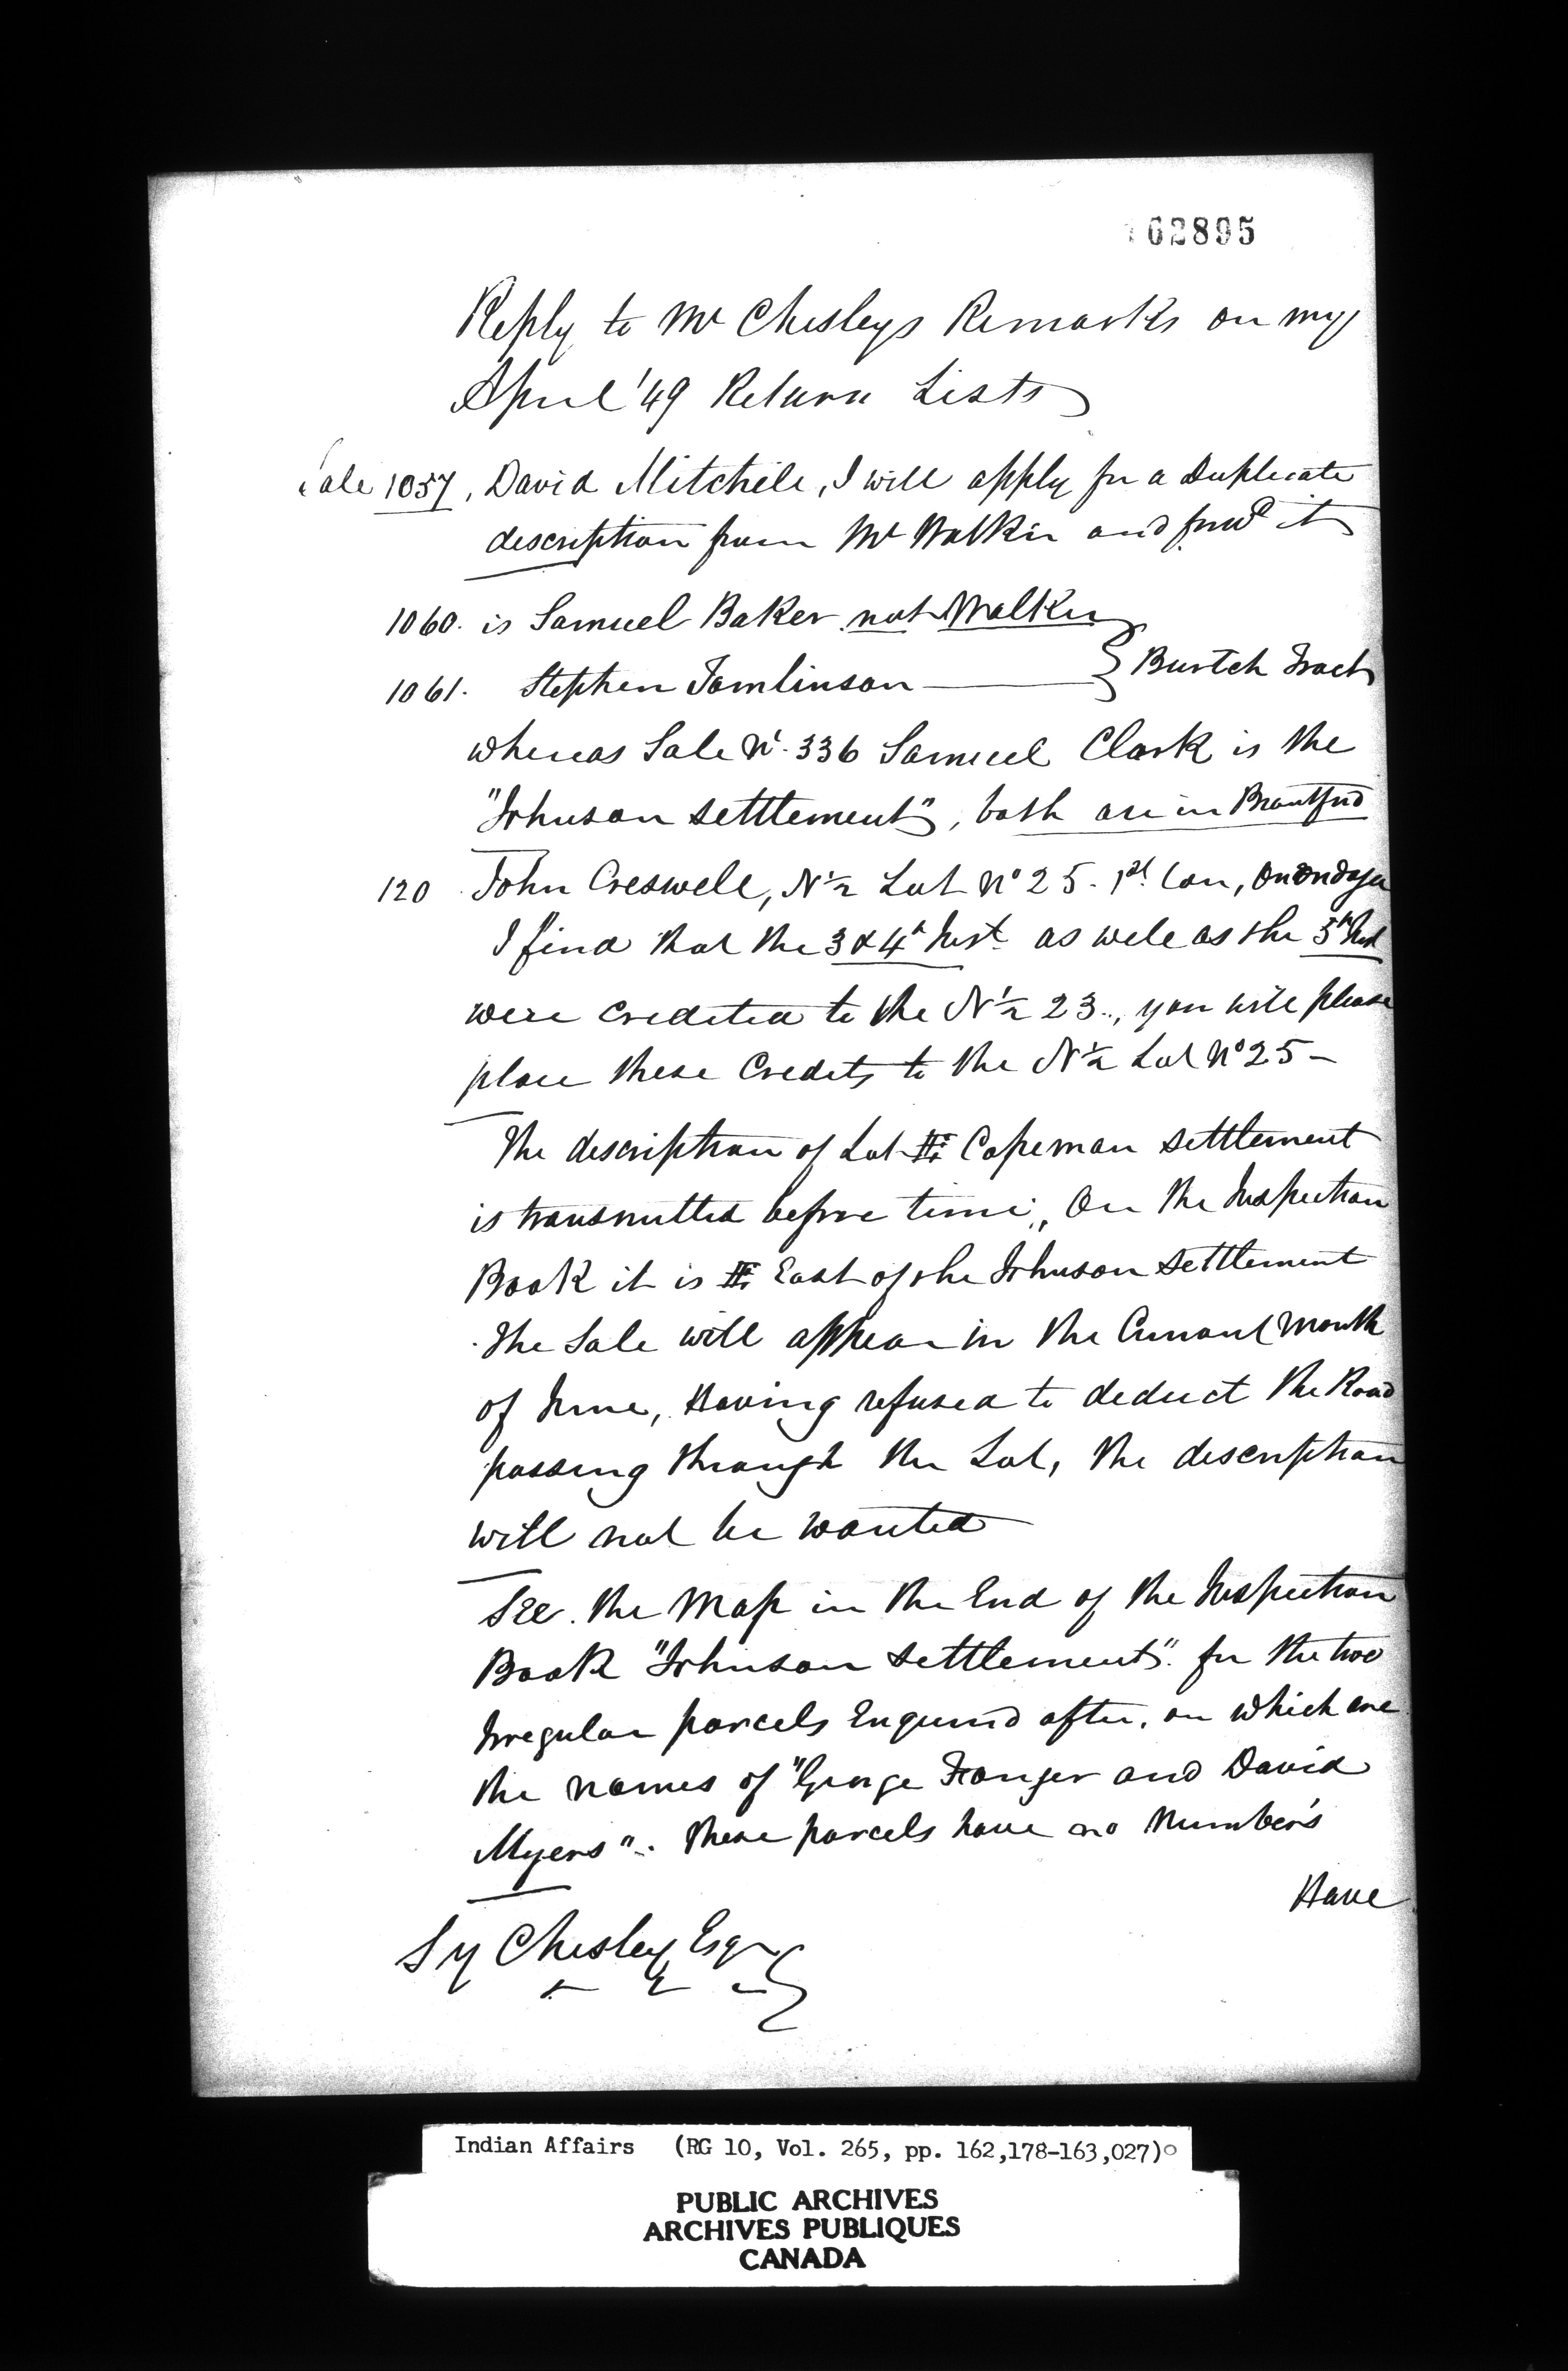 162895
Reply to Mr Chesleys Remarks on my
April '49 Return Lists
Sale 1057, David Mitchell, I will apply for a Duplicate
description from Mr Walker and forwd it
1060. is Samuel Baker not Walker
1061. Stephen Tomlinson } Burtch Tract
whereas Sale No. 336 Samuel Clark is the
"Johnson settlement", both are in Brantford
120 John Creswell, N½ Lot No 25. 1st Con, Onondaga
I find that the 3 & 4th Inst as well as the 5th Inst
were credited to the N½ 23., you will please
place these Credits to the N½ Lot No 25 -
The description of Lot Copeman settlement
is transmitted before time, On the Inspection
Book it is East of the Johnson settlement
The Sale will appear in the Current Month
of June, Having refused to deduct the Road
passing through the Lot, the description
will not be wanted
See the Map in the End of the Inspection
Book "Johnson settlement". for the two
Irregular parcels Enquired after, on which are
the names of "George and David
Myers". these parcels have no Number's
Have
S Y Chesley Esqr
Indian Affairs (RG 10, Vol. 265, pp. 162,178-163,027)
PUBLIC ARCHIVES
ARCHIVES PUBLIQUES
CANADA